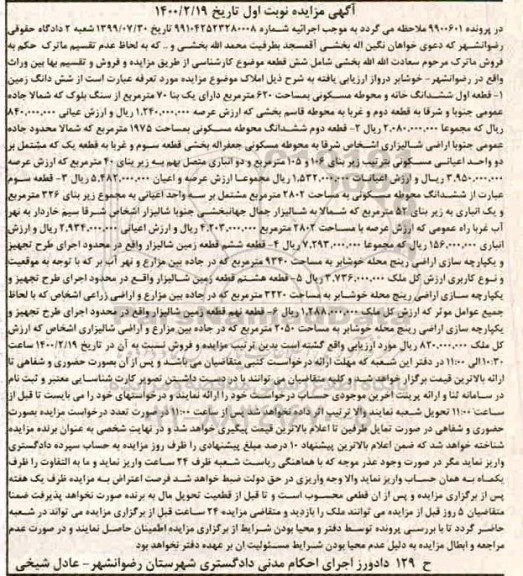 آگهی مزایده نوبت اول تاریخ ۱۴۰۰/۲/۱۹
در پرونده ۹۹۰۰۶۰۱ ملاحظه می گردد به موجب اجرائیه شماره ۹۹۱۰۴۲۵۲۳۲۸۰۰۰۸ تاریخ ۱۳۹۹/۰۷/۳۰ شعبه ۲ دادگاه حقوقی
رضوانشهر که دعوی خواهان نگین اله بخشی آقمسجد بطرفیت محمد الله بخشی و .. که به لحاظ عدم تقسیم ماترک حکم به
فروش ماترک مرحوم سعادت الله الله بخشی شامل شش قطعه موضوع کارشناسی از طریق مزایده و فروش و تقسیم بها بین وراث
واقع در رضوانشهر- خوشابر درواز ارزیابی یافته به شرح ذیل املاک موضوع مزایده مورد تعرفه عبارت است از شش دانگ زمین
۱- قطعه اول ششدانگ خانه و محوطه مسکونی بمساحت ۶۲۰ مترمربع دارای یک بنا ۷۰ مترمربع از سنگ بلوک که شمالا جاده
عمومی جنوبا و شرقا به قطعه دوم و غربا به محوطه قاسم بخشی که ارزش عرصه ۱.۲۴۰.۰۰۰.۰۰۰ ریال و ارزش عیانی ۸۴۰.۰۰۰.۰۰۰
ریال که مجموعا ۲.۰۸۰.۰۰۰.۰۰۰ ریال ۲- قطعه دوم ششدانگ محوطه مسکونی بمساحت ۱۹۷۵ مترمربع که شمالا محدود جاده
عمومی جنوبا اراضی شالیزاری اشخاص شرقا به محوطه مسکونی جعفراله بخشی قطعه سوم و غربا به قطعه یک که مشتمل بر
دو واحد اعیانی مسکونی بترتیب زیر بنای ۱۰۶ و ۱۰۵ مترمربع و دو انباری متصل بهم به زیر بنای ۴۰ مترمربع که ارزش عرصه
۳.۹۵۰.۰۰۰.۰۰۰ ریال و ارزش اعیانات ۱.۵۳۲.۰۰۰.۰۰۰ ریال مجموعا ارزش عرصه و اعیان ۵.۴۸۲.۰۰۰.۰۰۰ ریال ۳- قطعه سوم
عبارت از ششدانگ محوطه مسکونی به مساحت ۲۸۰۲ مترمربع مشتمل بر سه واحد اعیانی به مجموع زیر بنای ۳۲۶ مترمربع
و یک انباری به زیر بنای ۵۲ مترمربع که شمالا به شالیزار جمال جهانبخشی جنوبا شالیزار اشخاص شرقا سیم خاردار به نهر
آب غربا راه عمومی که ارزش عرصه با مساحت ۲۸۰۲ مترمربع ۴.۲۰۳.۰۰۰.۰۰۰ ریال و ارزش اعیانی ۲.۹۳۴.۰۰۰.۰۰۰ ریال و ارزش
انباری ۱۵۶.۰۰۰.۰۰۰ ریال که مجموعا ۷.۲۹۳.۰۰۰.۰۰۰ ریال ۴- قطعه ششم قطعه زمین شالیزار واقع در محدود اجرای طرح تجهیز
و یکپارچه سازی اراضی رینج محله خوشابر به مساحت ۹۳۴۰ مترمربع که در جاده بین مزارع و نهر آب بر که با توجه به موقعیت
و نوع کاربری ارزش کل ملک ۳.۷۳۶.۰۰۰.۰۰۰ ریال ۵- قطعه هشتم قطعه زمین شالیزار واقع در محدود اجرای طرح تجهیز و
یکپارچه سازی اراضی رینج محله خوشابر به مساحت ۳۲۲۰ مترمربع که در جاده بین مزارع و اراضی زراعی اشخاص که با لحاظ
جمیع عوامل موثر که ارزش کل ملک ۱.۲۸۸.۰۰۰.۰۰۰ ریال ۶- قطعه نهم قطعه زمین شالیزار واقع در محدود اجرای طرح تجهیز و
یکپارچه سازی اراضی رینج محله خوشابر به مساحت ۲۰۵۰ مترمربع که در جاده بین مزارع و اراضی شالیزاری اشخاص که ارزش
کل ملک ۸۲۰.۰۰۰.۰۰۰ ریال مورد ارزیابی واقع گشته است بدین ترتیب مزایده و فروش نسبت به آن در تاریخ ۱۴۰۰/۲/۱۹ ساعت
۱۰:۳۰ الی ۱۱:۰۰ در دفتر این شعبه که مهلت ارائه درخواست کتبی متقاضیان می باشد و پس از آن بصورت حضوری و شفاهی تا
ارائه بالاترین قیمت برگزار خواهد شد و کلیه متقاضیان می توانند با در دست داشتن تصویر کارت شناسایی معتبر و ثبت نام
در سامانه ثنا و ارائه پرینت آخرین موجودی حساب درخواست خود را ارائه نمایند و درخواستهای خود را می بایست تا قبل از
ساعت ۱۱:۰۰ تحویل شعبه نمایند والا ترتیب اثر داده نخواهد شد پس از ساعت ۱۱:۰۰ در صورت تعدد درخواست مزایده بصورت
حضوری و شفاهی در صورت تمایل طرفین تا اعلام بالاترین قیمت پیگیری خواهد شد و در نهایت شخصی به عنوان برنده مزایده
شناخته خواهد شد که ضمن اعلام بالاترین پیشنهاد ۱۰ درصد مبلغ پیشنهادی را ظرف روز مزایده به حساب سپرده دادگستری
واریز نماید مگر در صورت وجود عذر موجه که با هماهنگی ریاست شعبه ظرف ۲۴ ساعت واریز نماید و ما به التفاوت را ظرف
یکماه به همان حساب واریز نماید والا وجه واریزی در حق دولت ضبط خواهد شد فرصت اعتراض به مزایده ظرف یک هفته
پس از برگزاری مزایده و پس از آن قطعی محسوب است و تا قبل از قطعیت تحویل مال به برنده صورت نخواهد پذیرفت ضمنا
متقاضیان ۵ روز قبل از مزایده می توانند ملک را بازدید و متقاضی مزایده ۲۴ ساعت قبل از برگزاری مزایده می تواند در شعبه
حاضر گردد تا با بررسی پرونده توسط دفتر و محیا بودن شرایط از برگزاری مزایده اطمینان حاصل نمایند و در صورت عدم
مراجعه و ابطال مزایده به دلیل عدم محیا بودن شرایط مسئولیت ان بر عهده دفتر نخواهد بود
ح ۱۲۹ دادورز اجرای احکام مدنی دادگستری شهرستان رضوانشهر- عادل شیخی